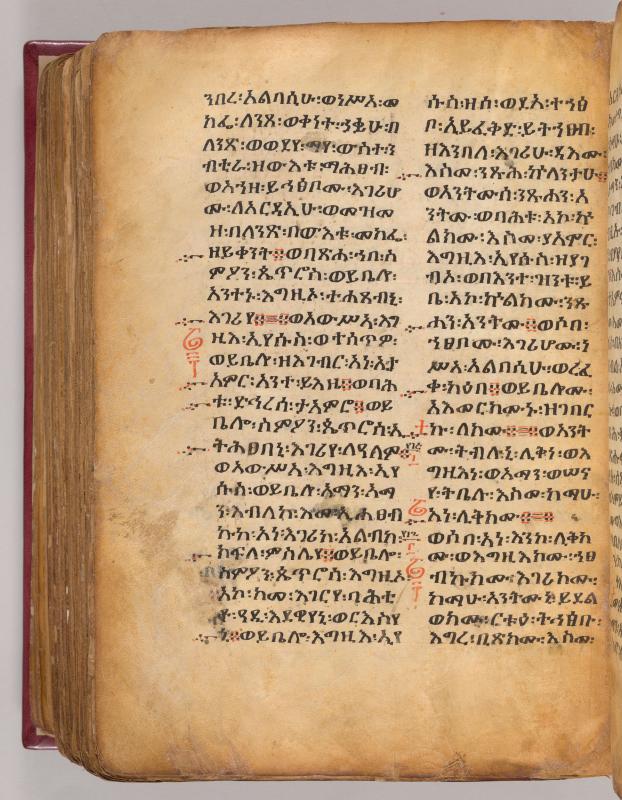 ንበረ፡አልባሲሁ፡ወነሥአ፡መ
ክፌ፡ለንጸ፡ወቀነተ፡ኀቌሁ፡በ
ለንጽ፡ወወደየ፡ማየ፡ውስተ፡ን
ብቲራ፡ዝውእቱ፡ማሕፀብ፡
ወአኀዘ፡ይኅፅቦሙ፡እገሪሆ
ሙ፡ለአርዳኢሁ፡ወመዝመ
ዘ፡በለንጽ፡በውእቱ፡መክፌ፡
ዘይቀንት፡፡ወበጽሐ፡ኀበ፡ስ
ምዖን፡ጴጥሮስ፡ወይቤሎ፡
አንተኑ፡እግዚኦ፡ተሐጽብኒ፡
እገሪየ፡፡ወአውሥአ፡እግ
ዚእ፡ኢየሱስ፡ወተሰጥዎ፡
ወይቤሎ፡ዘእገብር፡አነ፡ኢታ
አምር፡አንተ፡ይእዜ፡፡ወባሕ
ቱ፡ድኅረሰ፡ታአምሮ፡፡ወይ
ቤሎ፡ስምዖን፡ጴጥሮስ፡ኢ
ትሕፀበኒ፡እገሪየ፡ለዓለም፡፡
ወአውሥአ፡እግዚእ፡ኢየ
ሱስ፡ወይቤሎ፡አማን፡አማ
ን፡እብለከ፡እመ፡ኢሐፀብ
ኩከ፡አነ፡እገሪከ፡አልብከ፡
ክፍለ፡ምስሌየ፡፡ወይቤሎ፡
ስምዖን፡ጴጥሮስ፡እግዚኦ፡
አኮ፡ከመ፡እገርየ፡ባሕቲ
ቶ፡ዓዲ፡እደዊየኒ፡ወርእስየ
ኒ፡፡ወይቤሎ፡እግዚእ፡ኢየ
ሱስ፡ዘሰ፡ወደአ፡ተኀፅ
ቦ፡ኢይፈቅድ፡ይትኀፀብ፡
ዘእንበለ፡እገሪሁ፡ዳእሙ፡
እስመ፡ንጹሕ፡ኵለንታሁ፡፡
ወአንትሙሰ፡ንጹሐን፡አ
ንትሙ፡ወባሕቱ፡አኮ፡ኵ
ልክሙ፡እስመ፡ያአምር፡
እግዚእ፡ኢየሱስ፡ዘያገ
ብኦ፡ወበእንተ፡ዝንቱ፡ይ
ቤ፡አኮ፡ኵልክሙ፡ንጹ
ሐን፡አንትሙ፡፡ወሶበ፡
ኀፀቦሙ፡እገሪሆሙ፡ነ
ሥአ፡አልባሲሁ፡ወረፈ
ቀ፡ካዕበ፡፡ወይቤሎሙ፡
አእመርክሙኑ፡ዘገበር
ኩ፡ለክሙ፡፡ወአንት
ሙ፡ትብሉኒ፡ሊቅነ፡ወእ
ግዚእነ፡ወአማን፡ወሠና
የ፡ትቤሉ፡እስመ፡ከማሁ፡
አነ፡ሊቅክሙ፡፡
ወሶበ፡አነ፡እንከ፡ሊቅክ
ሙ፡ወእግዚእክሙ፡ኀፀ
ብኩክሙ፡እገሪክሙ፡
ከማሁ፡አንትሙኒ፡ይደል
ወክሙ፡ርቱዕ፡ትኅፅቡ፡
እግረ፡ቢጽክሙ፡እስመ፡